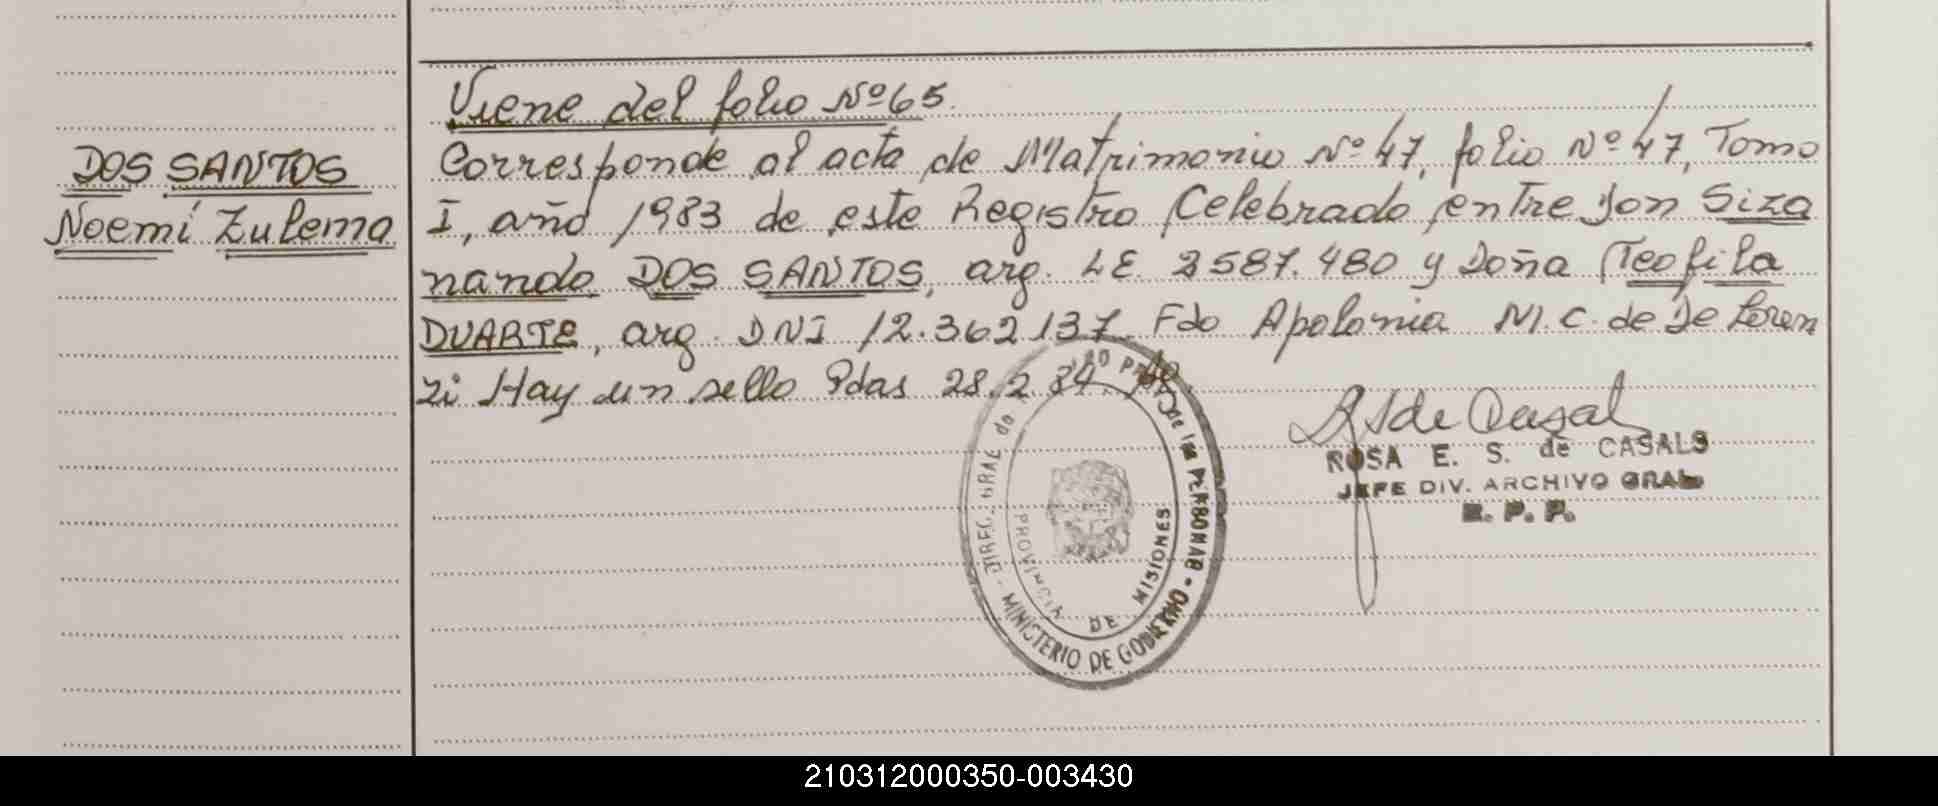 Viene del folio Nº 65.
DOS SANTOS
Noemí Zulema
Corresponde al acta de Matrimonio Nº 47, folio Nº 47, Tomo
I, año 1983 de este Registro Celebrado entre Don Siza
nando DOS SANTOS, arg. LE 2587.480 y Doña Teofila
DUARTE, arg. DNI 12.362.137. Fdo Apolonia M.C. de De Loren
zi Hay un sello Pdas 28.2.84.
ROSA E. S. de CASALS
JEFE DIV. ARCHIVO GRAL
R. P. P.
de las PERSONAS - MINISTERIO DE GOBIERNO -
PROVINCIA DE MISIONES
210312000350-003430